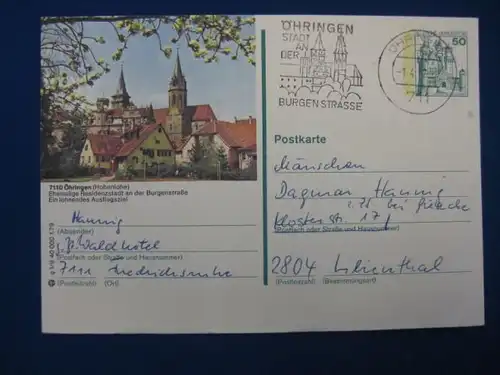 ÖHRINGEN
STADT
AN
DER
BURGENSTRASSE
50
7110 Öhringen (Hohenlohe)
Ehemalige Residenzstadt an der Burgenstraße
Ein lohnendes Ausflugsziel
Postkarte
Dagmar Hannig
z.Zt. bei
Klosterstr. 17
(Postfach oder Straße und Hausnummer)
2804 Lilienthal
(Postleitzahl) (Bestimmungsort)
Hannig
(Absender)
z.Zt. Waldhotel
(Postfach oder Straße und Hausnummer)
7111 Friedrichsruhe
(Postleitzahl) (Ort)